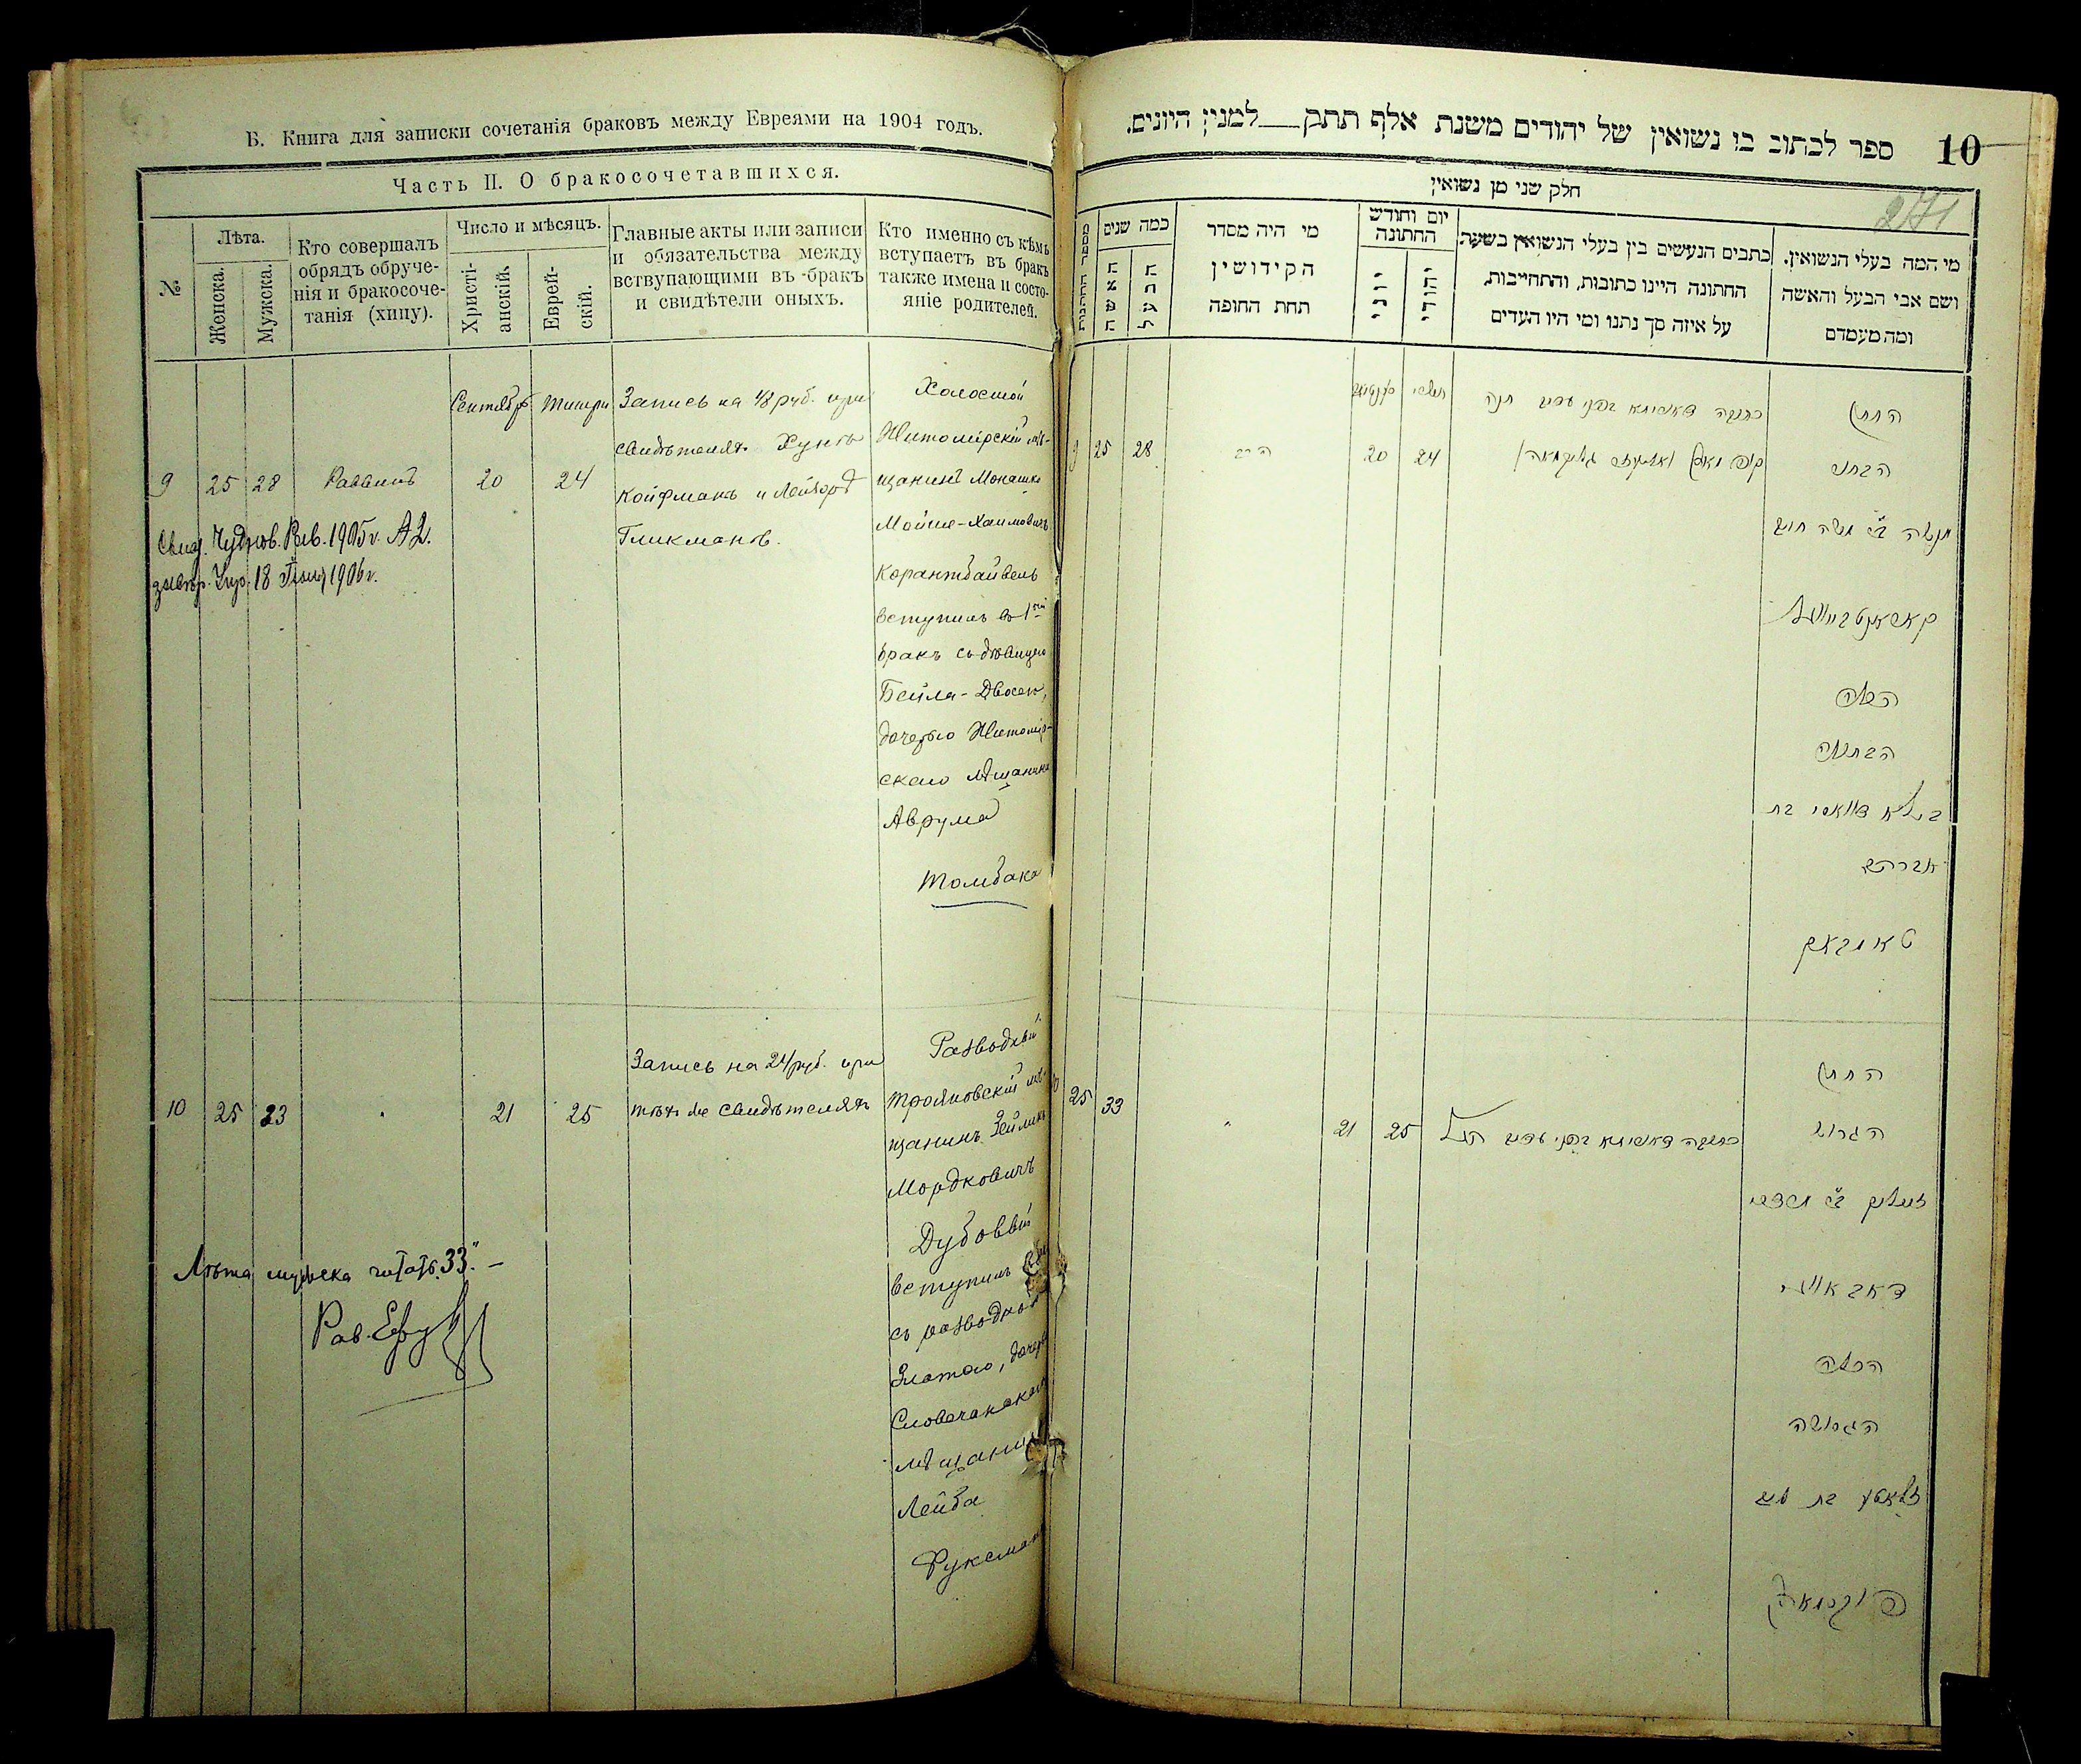 Б. Книга для записки сочетанія браковъ между Евреями на 1904 годъ.
Часть II. О бракосочетавшихся.
№
Лѣта.
Женска.
Мужска.
Кто совершалъ
обрядъ обруче-
нія и бракосоче-
танія (хипу).
Число и мѣсяцъ.
Христі-
анскій.
Еврей-
скій.
Главные акты или записи
и обязательства между
вствупающими въ бракъ
и свидѣтели оныхъ.
Кто именно съ кѣмъ
вступаетъ въ бракъ
также имена и состо-
яніе родителей.
Сентябрь Тишри
9 25 28 Раввинъ 20 24
Запись на 48 руб. при
свидѣтелях
Койфманъ и Лейзоръ
Гликманов.
Холостой
Житомірскій мѣ-
щанинъ Монашко
Мойше-Хаимовичъ
Корантбайвель
вступилъ въ 1й
бракъ съ дѣвицею
Бейла-Двосею,
дочерью Житомір-
скаго мѣщанина
Аврума
Томбака
Свид. Чуднов. Рав. 1905 г.
18 1906 г.
10 25 23 " 21 25
Запись на 24 руб. при
тѣхъ же свидѣтеляхъ
Разводный
Трояновскій мѣ-
щанинъ Зейликъ
Мордковичъ
Дубовый
вступилъ
съ разводною
Златою, дочерью
Словечанскаго
мѣщанина
Лейба
Фуксмана
Лѣта мужска читать „33". —
Рав.
ספר לכתוב בו נשואין של יהודים משנת אלף תתק למנין היונים.
10
271
חלק שני מן נשואין
מספר החתונות
כמה שנים
האשה
הבעל
מי היה מסדר
הקידושין
תחת החופה
יום וחודש
החתונה
יוני
יהודי
כתבים הנעשים בין בעלי הנשואין בשעת
החתונה היינו כתובות, והתחייבות,
על איזה סך נתנו ומי היו העדים
מי המה בעלי הנשואין.
ושם אבי הבעל והאשה
ומה מעמדם
9 25 28 הרב 20 24
החתן
הבחור
מנשה ב״ר משה חיים
קאראנטבייוועל
הכלה
הבתולה
ביילא דוואסי בת
אברהם
טאמבאק
25 33 " 21 25
החתן
הגרוש
זעליק ב״ר מרדכי
דאבאווי
הכלה
הגרושה
זלאטע בת
פוקסמאן